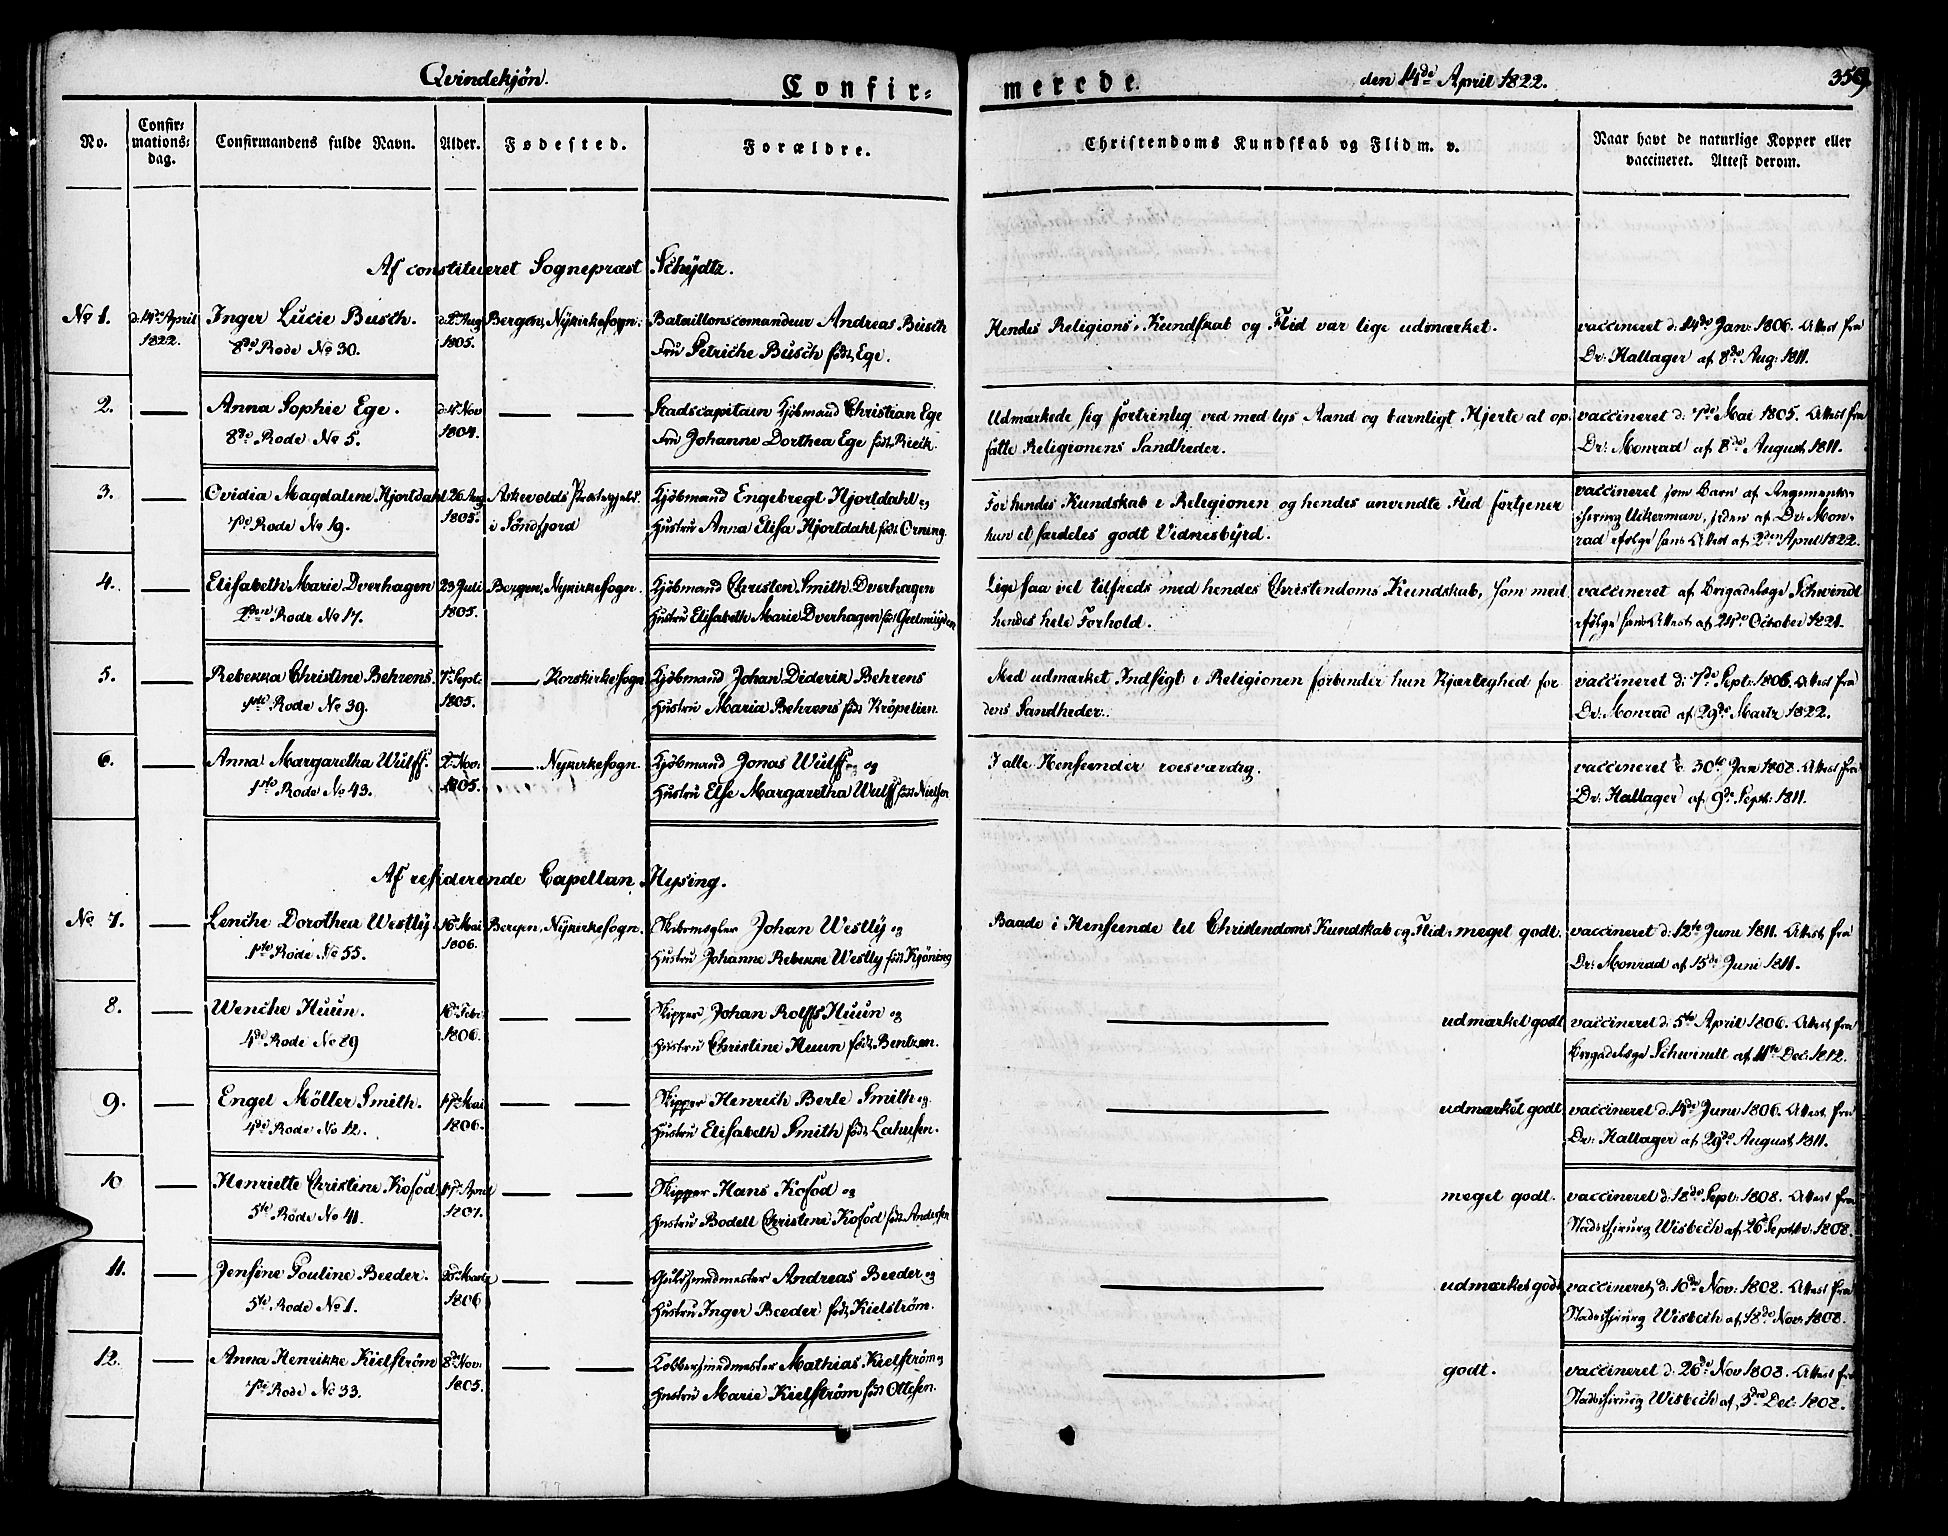 Qvindekjøn.
Confir=
merede.
den 14de April 1822.
359.
No.
Confir=
mations=
dag.
Confirmandens fulde Navn.
Alder.
Fødested.
Forældre.
Christendoms Kundskab og Flid m. v.
Naar havt de naturlige Kopper eller
vaccineret. Attest derom.
Af constitueret Sognepræst Schydtz.
No 1.
d: 14de April
1822.
Inger Lucie Busch.
8de Rode No 30.
1805.
Bergen, Nykirkesogn.
Bataillonscomandeur Andreas Busch
Fru Petriche Busch født Ege.
Hendes Religions-Kundskab og Flid var lige udmærket.
vaccineret d: 14de Jan: 1806. Attest fra
Dr: Hallager af 8de Aug: 1811.
2.
Anna Sophie Ege.
8de Rode No 5.
d: 4de Nov
1804.
Stadscapitain Kjøbmand Christian Ege
Fru Johanne Dorthea Ege født
Udmærkede sig fortrinlig ved med lys Aand og barnligt Hjerte at op-
fatte Religionens Sandheder.
vaccineret d: 7de Mai 1805. Attest fra
Dr: Monrad af 8de August 1811.
3.
Ovidia Magdalene Hjortdahl
7de Rode No 19.
26 Aug
1805.
Askevolds Præstegjeld
i Søndfjord
Kjøbmand Engebregt Hjortdahl og
Hustru Anna Elisa Hjortdahl født Orning.
For hendes Kundskab i Religionen og hendes anvendte Flid fortjener
hun et særdeles godt Vidnesbyrd.
vaccineret som Barn af Regiments-
chirurg Ackerman, siden af Dr: Mon-
rad ifølge hans Attest af 2den April 1822.
4.
Elisabeth Marie Dverhagen
2den Rode No 17.
23 Juli
1805.
Bergen, Nykirkesogn.
Kjøbmand Christen Smith Dverhagen
Hustru Elisabeth Marie Dverhagen født Geelmuyden
Lige saa vel tilfreds med hendes Christendoms Kundskab, som med
hendes hele Forhold.
vaccineret af Brigadelæge Schwindt
ifølge hans Attest af 24de October 1821.
5.
Rebekka Christine Behrens
1ste Rode No 39.
7de Sept:
1805.
Korskirkesogn
Kjøbmand Johan Diderik Behrens
Hustru Maria Behrens født Kröpelien.
Med udmærket Indsigt i Religionen forbinder hun Kjærlighed for
dens Sandheder.
vaccineret d: 7de Sept: 1806. Attest fra
Dr: Monrad af 29de Martz 1822.
6.
Anna Margaretha Wulff.
1ste Rode No 43.
2de Nov:
1805.
Nykirkesogn.
Kjøbmand Jonas Wulff og
Hustru Else Margaretha Wulff født Nielsen
I alle Henseender roesværdig.
vaccineret d 30te Jan 1808. Attest fra
Dr. Hallager af 9de Sept: 1811.
Af residerende Capellan Hysing.
No 7.
Lenche Dorothea Westly
1ste Rode No 55.
16de Mai
1806.
Bergen, Nykirkesogn.
Skibsmægler Johan Westly og
Hustru Johanne Rebekke Westly født Kjöning
Baade i Henseende til Christendoms Kundskab og Flid: meget godt.
vaccineret d: 12te June 1811. Attest fra
Dr: Monrad af 15de Juni 1811.
8.
Wenche Huun.
4de Rode No 29
16de Febr:
1806.
Skipper Johan Rolffs Huun og
Hustru Christine Huun født Bentzen.
udmærket godt
vaccineret d: 5te April 1806. Attest fra
Brigadelæge Schwindt af 11te Dec: 1812.
9.
Engel Möller Smith.
4de Rode No 12.
17de Mai
1806.
Skipper Henrich Berle Smith og
Hustru Elisabeth Smith født Lahusen.
udmærket godt
vaccineret d: 14de June 1806. Attest fra
Dr: Hallager af 29de August 1811.
10
Henriette Christine Kofod
5te Rode No 41.
17de April
1807.
Skipper Hans Kofod og
Hustru Bodell Christene Kofod født Andersen
meget godt.
vaccineret d: 18de Sept: 1808. Attest fra
Stadschirurg Wisbech af 26de Septbr. 1808.
11.
Jensine Pouline Beeder.
5te Rode No 1.
Martz
1806
Guldsmedmester Andreas Beeder og
Hustru Inger Beeder født Kielström.
udmærket godt
vaccineret d: 10de Nov: 1808. Attest fra
Stadschirurg Wisbech af 18de Nov: 1808.
12.
Anna Henrikke Kielström
7de Rode No 33.
8de Nov:
1805.
Kobbersmedmester Mathias Kielström og
Hustru Marie Kielström født Ottesen.
godt.
vaccineret d. 26de Nov 1808. Attest fra
Stadschirurg Wisbech af 3die Dec: 1808.